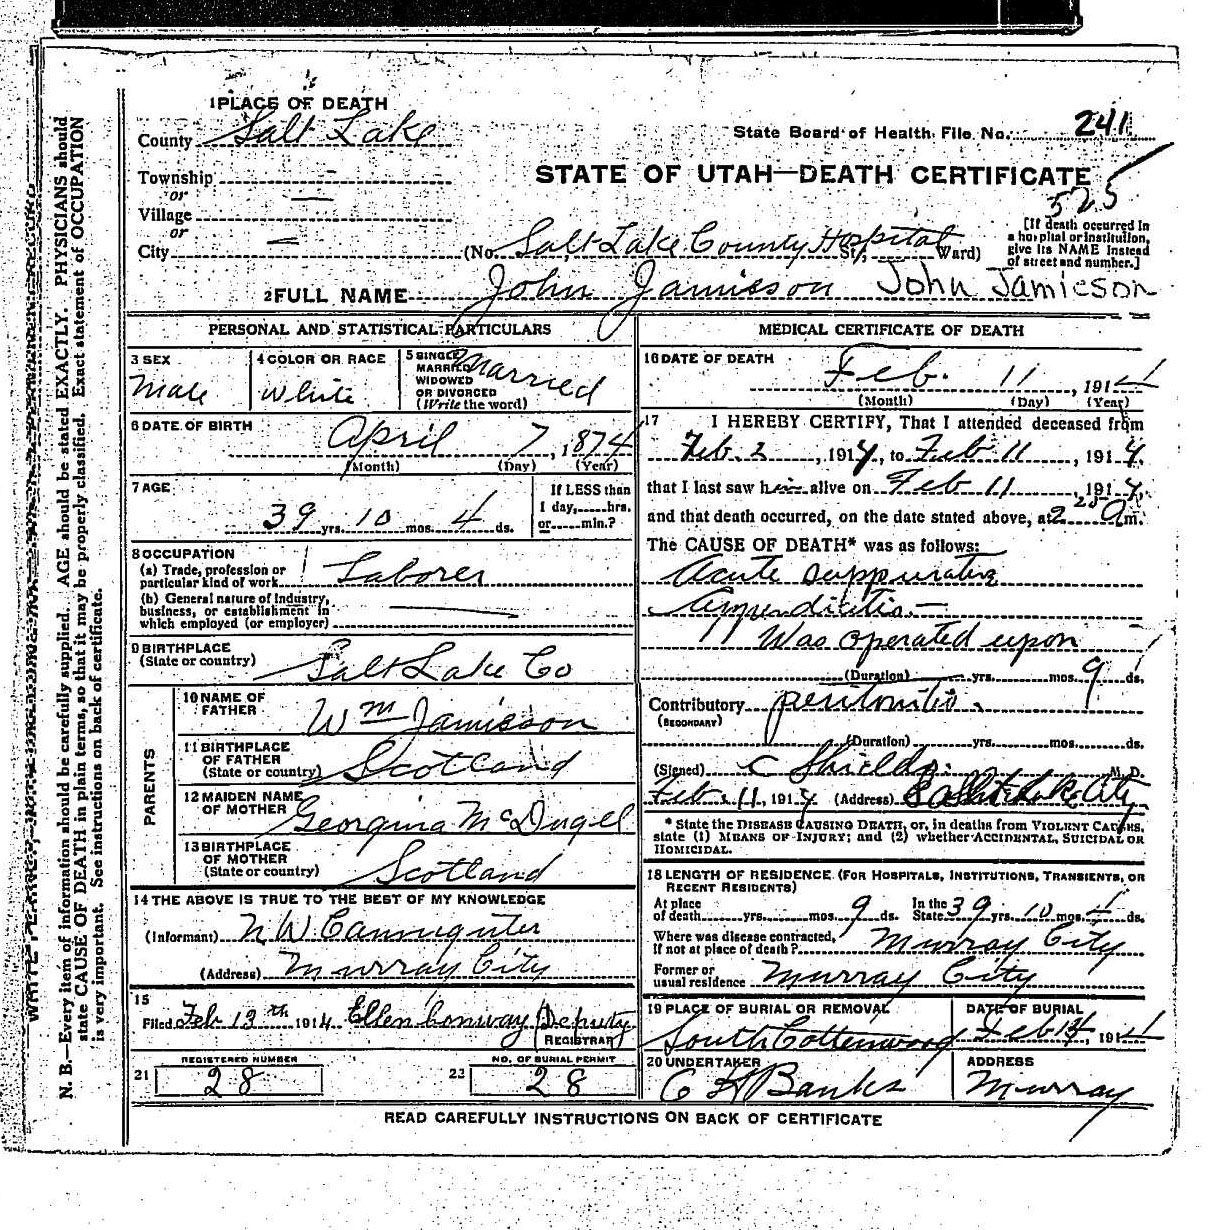 1 PLACE OF DEATH
County Salt Lake
Township –
or
Village —
or
City —
State Board of Health File No. 241
STATE OF UTAH—DEATH CERTIFICATE
525
(No. Salt Lake County Hospital St; Ward)
[If death occurred in
a hospital or institution,
give its NAME instead
of street and number.]
2 FULL NAME John Jamieson John Jamieson
PERSONAL AND STATISTICAL PARTICULARS
3 SEX
Male
4 COLOR OR RACE
White
5 SINGLE
MARRIED
WIDOWED
OR DIVORCED
(Write the word)
Married
6 DATE OF BIRTH
April 7, 1874
(Month) (Day) (Year)
7 AGE
39 yrs. 10 mos. 4 ds.
If LESS than
1 day,.....hrs.
or.....min.?
8 OCCUPATION
(a) Trade, profession or
particular kind of work Laborer
(b) General nature of Industry,
business, or establishment in
which employed (or employer) —
9 BIRTHPLACE
(State or country) Salt Lake Co
PARENTS
10 NAME OF
FATHER Wm Jamieson
11 BIRTHPLACE
OF FATHER
(State or country) Scotland
12 MAIDEN NAME
OF MOTHER Georgina McDugel
13 BIRTHPLACE
OF MOTHER
(State or country) Scotland
14 THE ABOVE IS TRUE TO THE BEST OF MY KNOWLEDGE
(Informant) N W
(Address) Murray City
15
Filed Feb 13th 1914 Ellen Conway Deputy
REGISTRAR
REGISTERED NUMBER
21 28
NO. OF BURIAL PERMIT
23 28
MEDICAL CERTIFICATE OF DEATH
16 DATE OF DEATH
Feb. 11, 1914
(Month) (Day) (Year)
17 I HEREBY CERTIFY, That I attended deceased from
Feb. 2, 1914, to Feb 11, 1914,
that I last saw him alive on Feb 11, 1914,
and that death occurred, on the date stated above, at 2 20 a m.
The CAUSE OF DEATH* was as follows:
Acute suppurative
Appendicitis.—
Was operated upon
(Duration) yrs. mos. 9 ds.
Contributory peritonitis.
(SECONDARY)
(Duration) yrs. mos. ds.
(Signed) C Shields. M. D.
Feb. 11, 1914 (Address) Salt Lake City
* State the DISEASE CAUSING DEATH, or, in deaths from VIOLENT CAUSES,
state (1) MEANS OF INJURY; and (2) whether ACCIDENTAL, SUICIDAL OR
HOMICIDAL.
18 LENGTH OF RESIDENCE (FOR HOSPITALS, INSTITUTIONS, TRANSIENTS, OR
RECENT RESIDENTS)
At place
of death yrs. mos. 9 ds. In the
State 39 yrs. 10 mos. 4 ds.
Where was disease contracted,
if not at place of death? Murray City
Former or
usual residence Murray City
19 PLACE OF BURIAL OR REMOVAL
South Cottonwood
DATE OF BURIAL
Feb 14, 1914
20 UNDERTAKER
Banks
ADDRESS
Murray
READ CAREFULLY INSTRUCTIONS ON BACK OF CERTIFICATE
N. B.—Every item of information should be carefully supplied. AGE should be stated EXACTLY. PHYSICIANS should
state CAUSE OF DEATH in plain terms, so that it may be properly classified. Exact statement of OCCUPATION
is very important. See instructions on back of certificate.